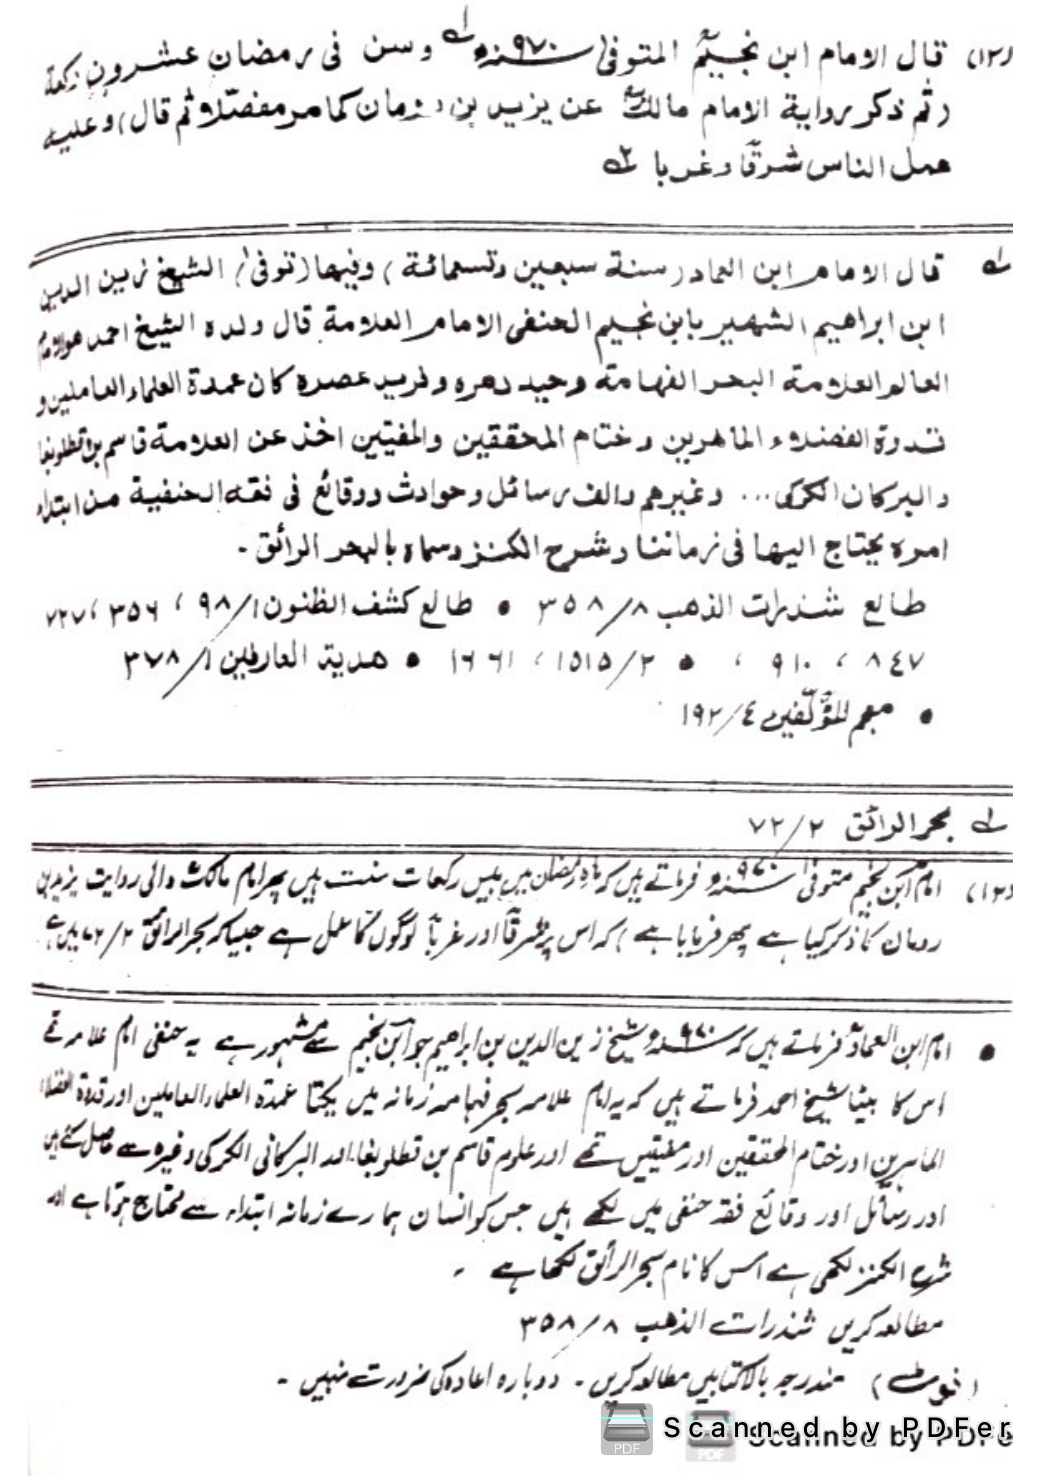 (۱۲) قال الامام ابن نجیمؒ المتوفیٰ سنہ ۹۷۰ھ لہ وسن فی رمضان عشرون رکعۃ
(ثم ذکر روایۃ الامام مالکؒ عن یزید بن رومان کما مر مفصلا و ثم قال) وعلیہ
عمل الناس شرقًا وغربا
لہ قال الامام ابن العماد (سنۃ سبعین وتسعمائۃ) وفیھا (توفیٰ) الشیخ زین الدین
ابن ابراھیم الشھیر بابن نجیم الحنفی الامام العلامۃ قال ولدہ الشیخ احمد ھو الامام
العالم العلامۃ البحر الفھامۃ وحید دھرہ وفرید عصرہ کان عمدۃ العلماء العاملین و
قدوۃ الفضلاء الماھرین وختام المحققین والمفتیین اخذ عن العلامۃ قاسم بن قطلوبغا
والبرکان الکرکی... وغیرھم والف رسائل وحوادث ووقائع فی فقہ الحنفیۃ من ابتداء
امرہ یحتاج الیھا فی زماننا وشرح الکنز وسماہ بالبحر الرائق -
طالع شذرات الذھب ۸/۳۵۸ • طالع کشف الظنون ۱/۹۸ ، ۳۵۶ ، ۷۲۷
۸٤۷ ، ۹۱۰ ، • ۲/۱۵۱۵ ، ۱٦٦۱ • ھدیۃ العارفین ۱/۳۷۸
• معجم المؤلّفین ٤/۱۹۲
بحر الرائق ۲/۷۲
(۱۲) امام ابن نجیم متوفیٰ سنہ ۹۷۰ھ فرماتے ہیں کہ ماہِ رمضان میں بیس رکعات سنت ہیں پھر امام مالکؒ والی روایت یزید بن
رومان کا ذکر کیا ہے پھر فرمایا ہے) کہ اس پر شرقاً اور غرباً لوگوں کا عمل ہے جیسا کہ بحر الرائق ۲/۷۲ میں ہے
• امام ابن العمادؒ فرماتے ہیں کہ سنہ ۹۷۰ھ شیخ زین الدین بن ابراہیم جو ابن نجیم سے مشہور ہے یہ حنفی امام علامہ تھے
اس کا بیٹا شیخ احمد فرماتے ہیں کہ یہ امام علامہ بحر فہامہ زمانہ میں یکتا عمدۃ العلماء العاملین اور قدوۃ الفضلاء
الماہرین اور ختام المحققین اور مفتیین تھے اور علوم قاسم بن قطلوبغا اور البرکانی الکرکی وغیرہ سے حاصل کئے ہیں
اور رسائل اور وقائع فقہ حنفی میں لکھے ہیں جس کو انسان ہمارے زمانہ ابتداء سے محتاج ہوتا ہے اور
شرح الکنز لکھی ہے اس کا نام بحر الرائق لکھا ہے -
مطالعہ کریں شذرات الذھب ۸/۳۵۸
(نوٹ) مندرجہ بالا کتابیں مطالعہ کریں - دوبارہ اعادہ کی ضرورت نہیں -
PDF Scanned by PDFer
PDF Scanned by PDFe